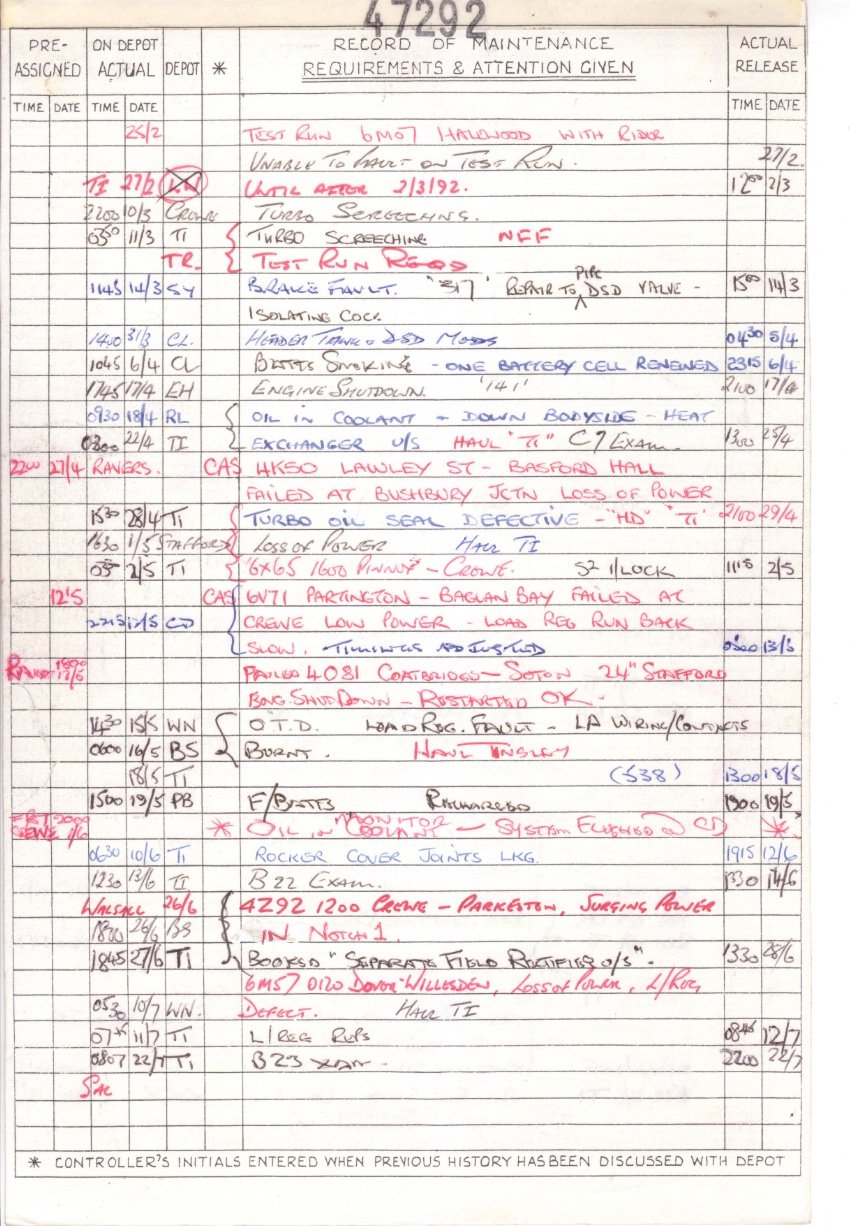 47292
PRE-ASSIGNED ON DEPOT ACTUAL DEPOT * RECORD OF MAINTENANCE REQUIREMENTS & ATTENTION GIVEN ACTUAL RELEASE
TIME DATE TIME DATE TIME DATE
25/2 TEST RUN 6M07 HALEWOOD WITH RIDER
UNABLE TO FAULT ON TEST RUN. 27/2
TI 27/2 UNTIL AFTER 2/3/92. 1200 2/3
2200 10/3 CREWE TURBO SCREECHING.
0350 11/3 TI TURBO SCREECHING NFF
TR. TEST RUN REQD
1145 14/3 SY BRAKE FAULT. "317" REPAIR TO PIPE DSD VALVE - 1500 14/3
ISOLATING COCK
1400 31/3 CL. HEADER TANK & DSD MODS 0430 5/4
1045 6/4 CL BETTS SMOKING - ONE BATTERY CELL RENEWED 2315 6/4
1745 17/4 EH ENGINE SHUTDOWN. '141' 2100 17/4
0930 18/4 RL OIL IN COOLANT - DOWN BODYSIDE - HEAT
0300 22/4 TI EXCHANGER U/S HAUL "TI" C7 EXAM. 1300 25/4
2200 27/4 RAVERS. CAS 4K50 LAWLEY ST - BASFORD HALL
FAILED AT BUSHBURY JCTN LOSS OF POWER
1530 28/4 TI TURBO OIL SEAL DEFECTIVE - "HD" "TI" 2100 29/4
1630 1/5 STAFFORD LOSS OF POWER HAUL TI
2/5 TI 6X65 1600 - CREWE. 1115 2/5
12/5 CAS 6V71 PARTINGTON - BAGLAN BAY FAILED AT
2215 12/5 CD CREWE LOW POWER - LOAD REG RUN BACK
SLOW. TIMINGS ADJUSTED 13/5
FAILED 4O81 COATBRIDGE - SOTON 24" STAFFORD
ENG. SHUTDOWN - RESTARTED OK.
1430 15/5 WN O.T.D. LOAD REG. FAULT - LA WIRING/CONTACTS
0600 16/5 BS BURNT. HAUL TINSLEY
18/5 TI (538) 1300 18/5
1500 19/5 PB F/BETTS RECHARGED 1900 19/5
2000 CREWE 1/6 * MONITOR OIL IN COOLANT - SYSTEM FLUSHED @ CD *
0630 10/6 TI ROCKER COVER JOINTS LKG. 1915 12/6
1230 13/6 TI B22 EXAM. 1330 14/6
WALSALL 26/6 4Z92 1200 CREWE - PARKESTON, SURGING POWER
1800 26/6 BS IN NOTCH 1.
1845 27/6 TI BOOKED "SEPARATE FIELD RECTIFIER U/S". 1330 28/6
6M57 0120 DOVER - WILLESDEN, LOSS OF POWER, L/REG,
0530 10/7 WN. DEFECT. HAUL TI
11/7 TI L/REG REPS 0845 12/7
0807 22/7 TI B23 XAM. 2200 22/7
* CONTROLLER'S INITIALS ENTERED WHEN PREVIOUS HISTORY HAS BEEN DISCUSSED WITH DEPOT